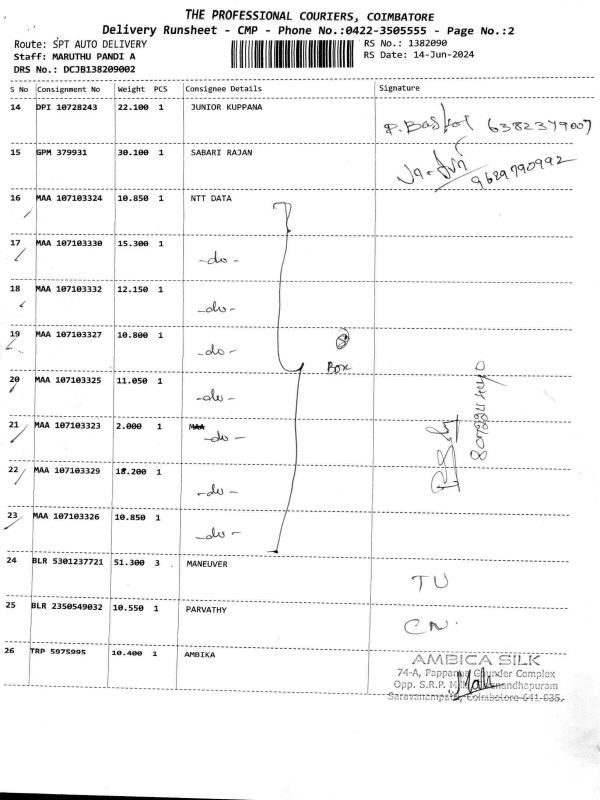 THE PROFESSIONAL COURIERS, COIMBATORE
Delivery Runsheet - CMP - Phone No.:0422-3505555 - Page No.:2
Route: SPT AUTO DELIVERY RS No.: 1382090
Staff: MARUTHU PANDI A RS Date: 14-Jun-2024
DRS No.: DCJB138209002
S No Consignment No Weight PCS Consignee Details Signature
14 DPI 10728243 22.100 1 JUNIOR KUPPANA 6382379007
15 GPM 379931 30.100 1 SABARI RAJAN 9629790992
16 MAA 107103324 10.850 1 NTT DATA
17 MAA 107103330 15.300 1 -do-
18 MAA 107103332 12.150 1 -do-
19 MAA 107103327 10.800 1 -do- 8 Box
20 MAA 107103325 11.050 1 -do-
21 MAA 107103323 2.000 1 MAA -do-
22 MAA 107103329 18.200 1 -do-
23 MAA 107103326 10.850 1 -do-
24 BLR 5301237721 51.300 3 MANEUVER TU
25 BLR 2350549032 10.550 1 PARVATHY CN.
26 TRP 5975995 10.400 1 AMBIKA
AMBICA SILK
74-A, Gounder Complex
Opp. S.R.P.
Coimbatore-641 035.